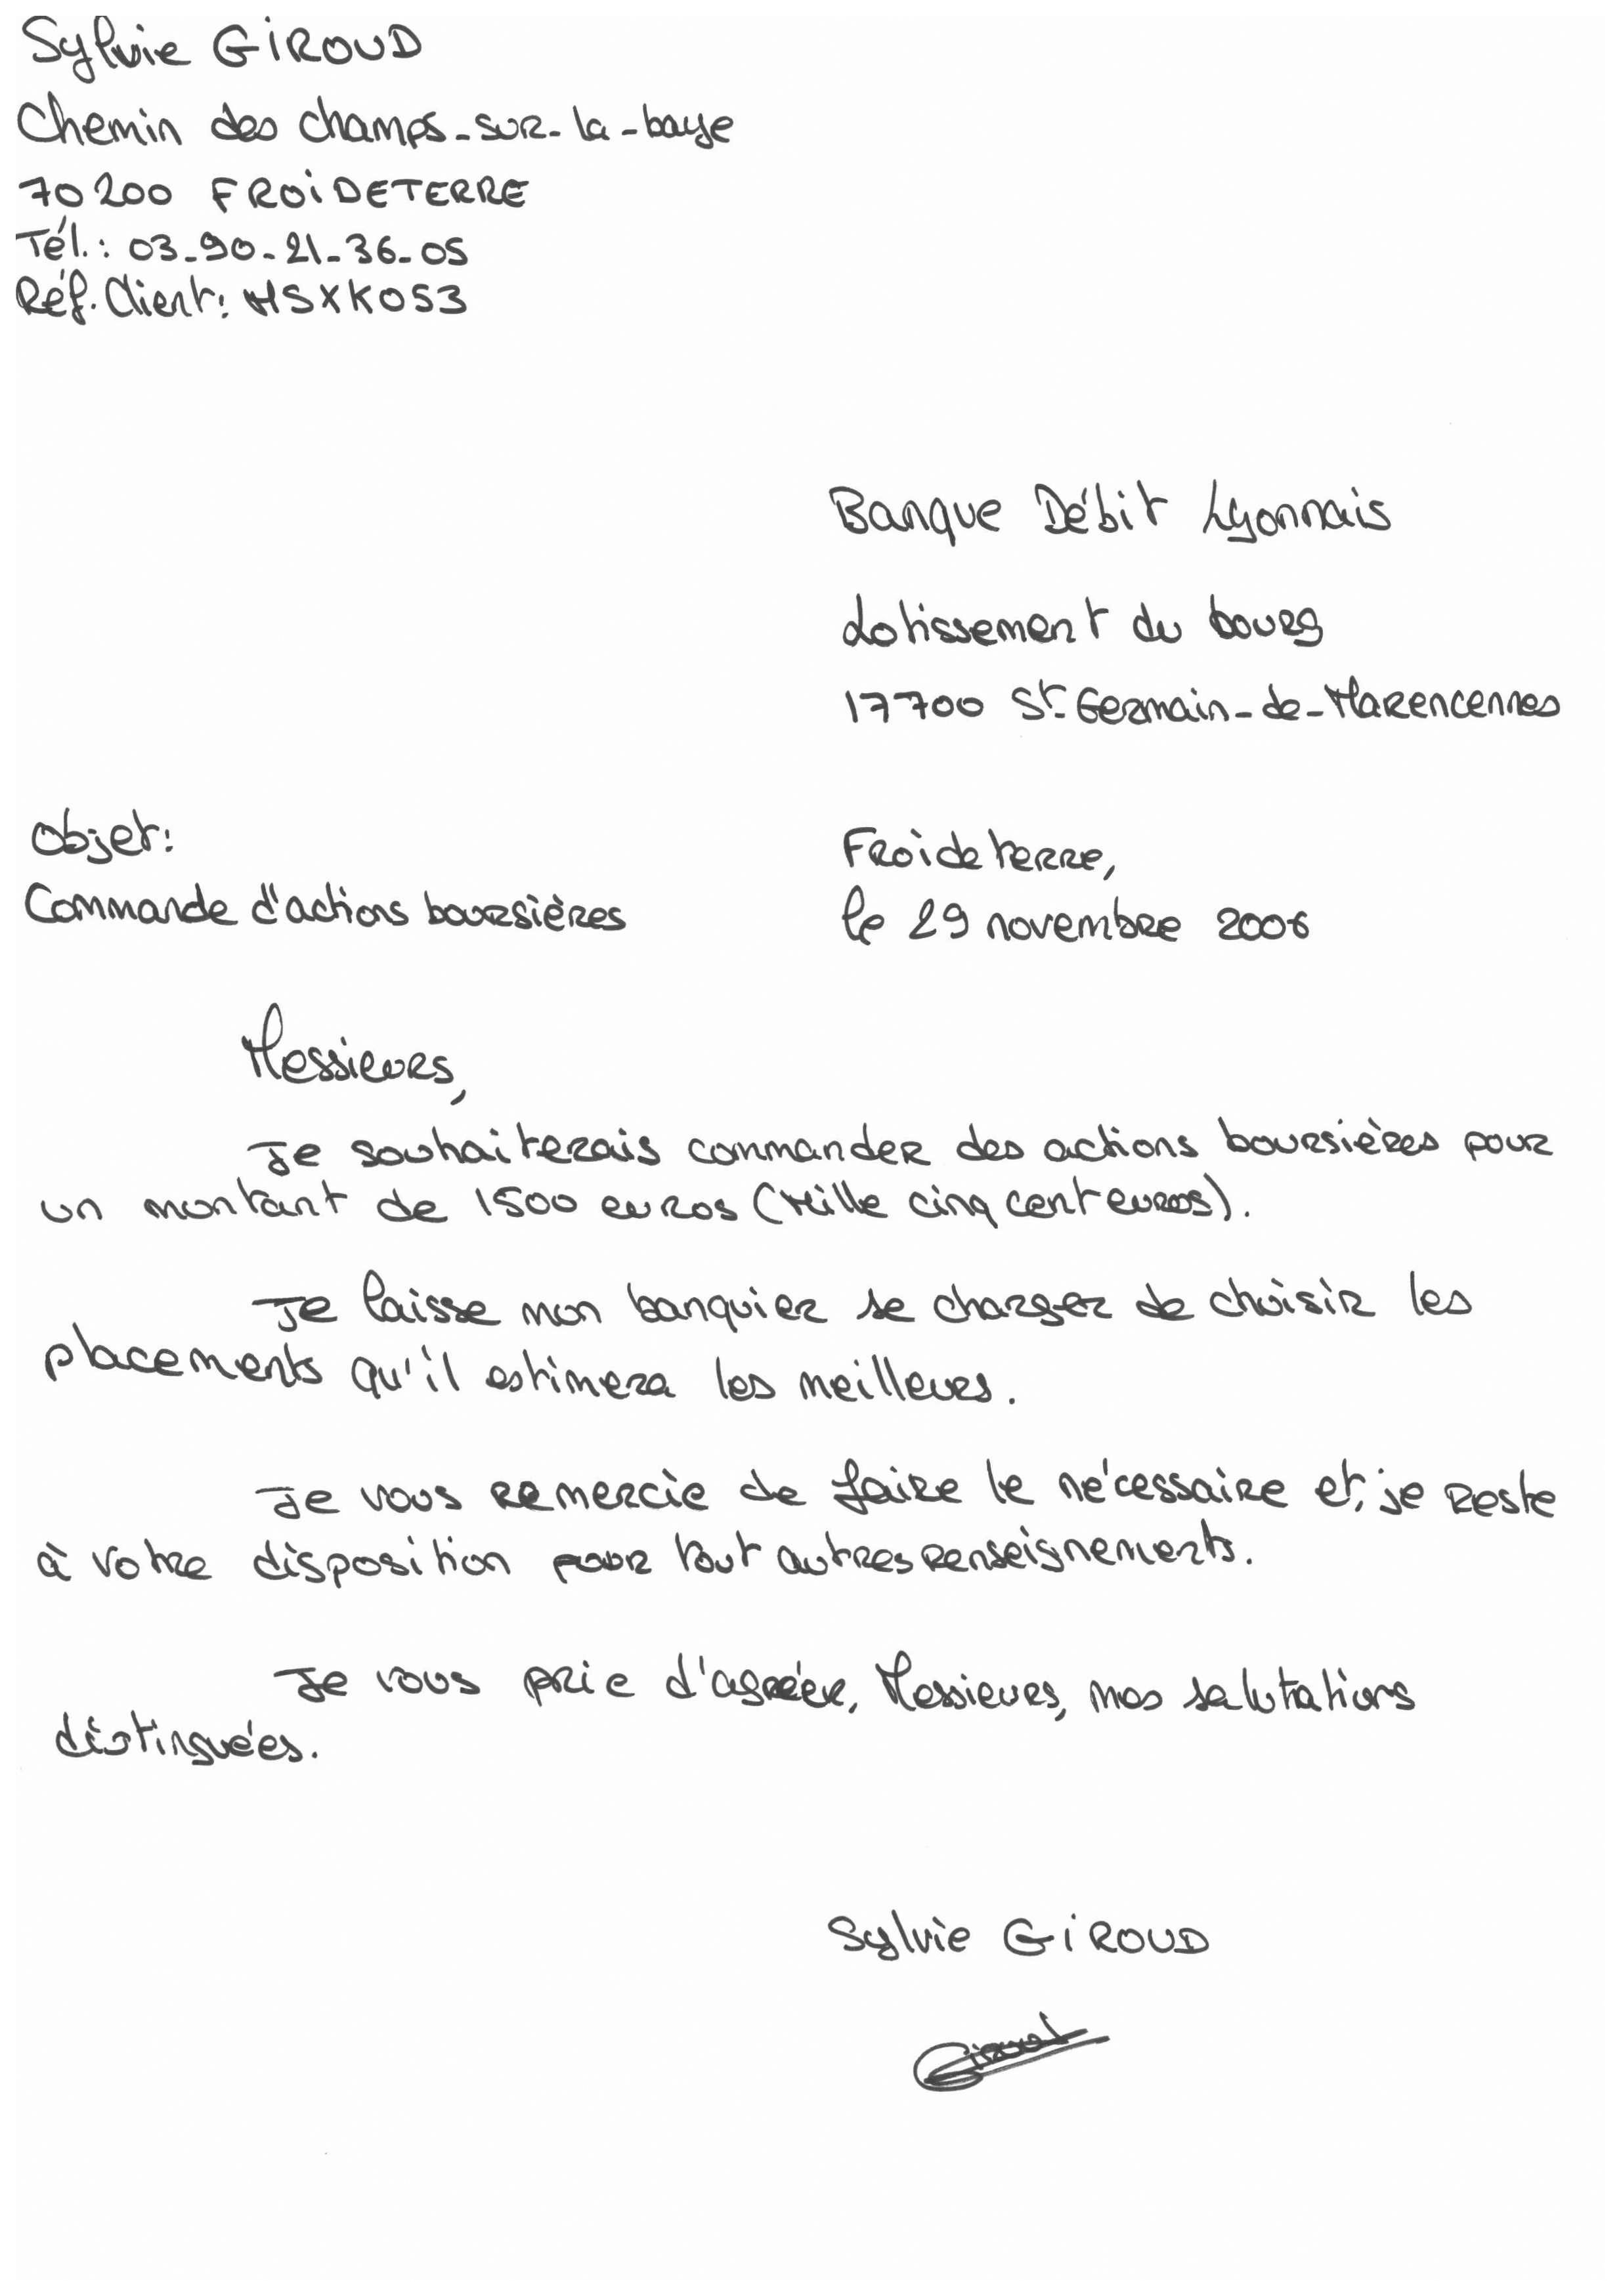 Sylvie GIROUD
Chemin des champs-sur-la-baye
70200 FROIDETERRE
Tél.: 03-90-21-36-05
Réf. Client: MSXK053
Banque Débit Lyonnais
Lotissement du bourg
17700 St-Germain-de-Marencennes
Objet:
Froideterre,
Commande d'actions boursières
le 29 novembre 2006
Messieurs,
Je souhaiterais commander des actions boursières pour
un montant de 1500 euros (Mille cinq cent euros).
Je laisse mon banquier se charger de choisir les
placements qu'il estimera les meilleurs.
Je vous remercie de faire le nécessaire et, je reste
à votre disposition pour tout autres renseignements.
Je vous prie d'agréer, Messieurs, mes salutations
distinguées.
Sylvie GIROUD
Giroud